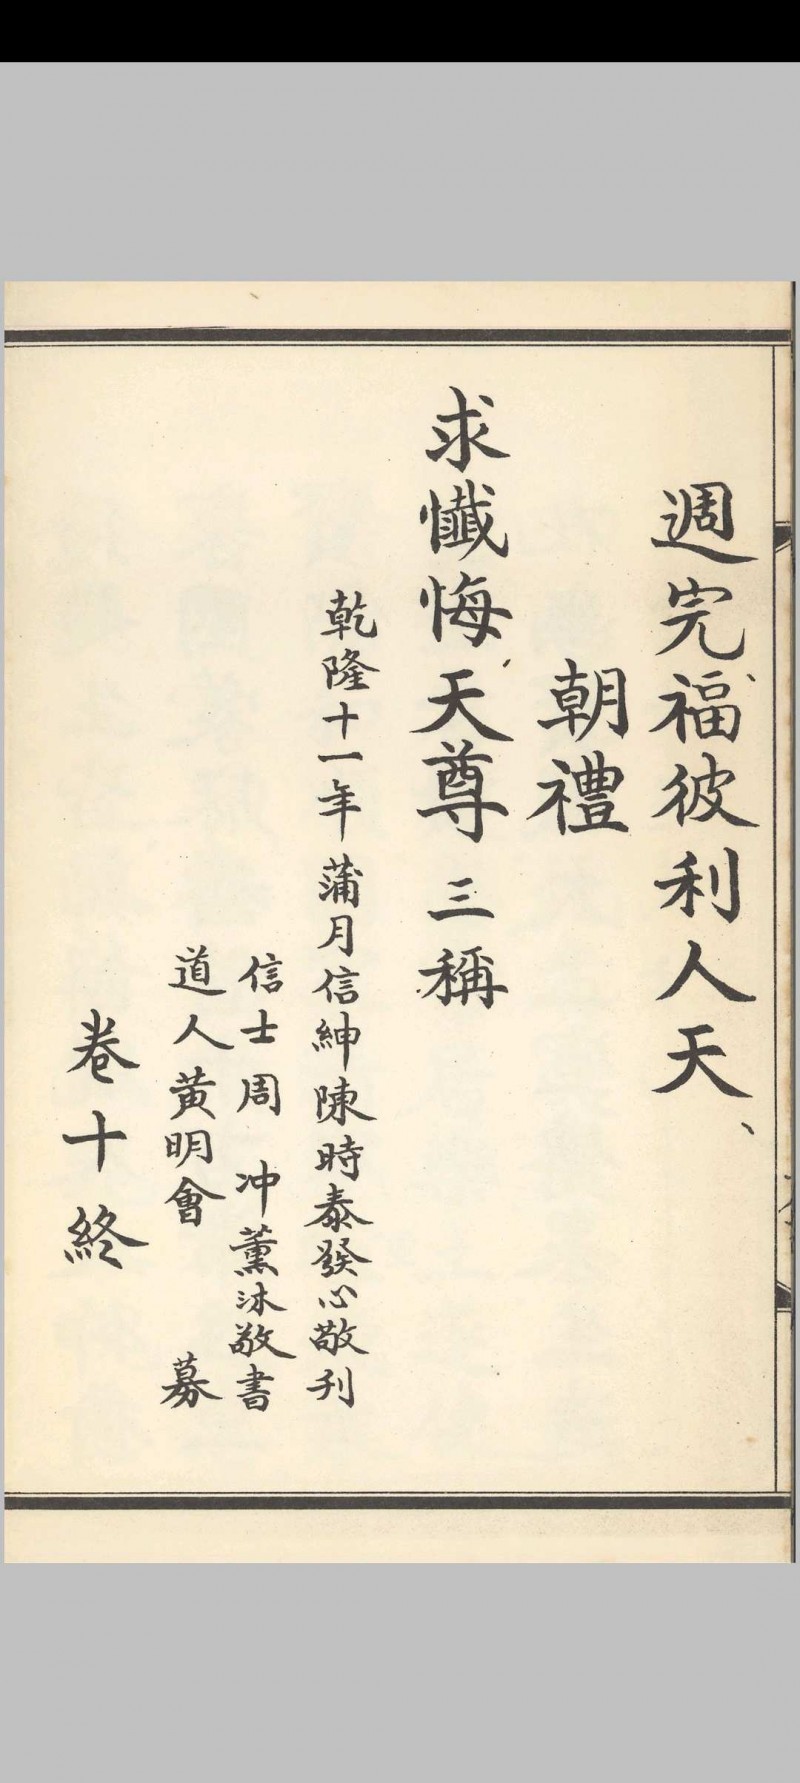 週完福彼利人天、
朝禮
求懺悔天尊三稱
乾隆十一年蒲月信紳陳時泰發心敬刊
信士周冲薰沐敬書
道人黃明會 募
卷十終